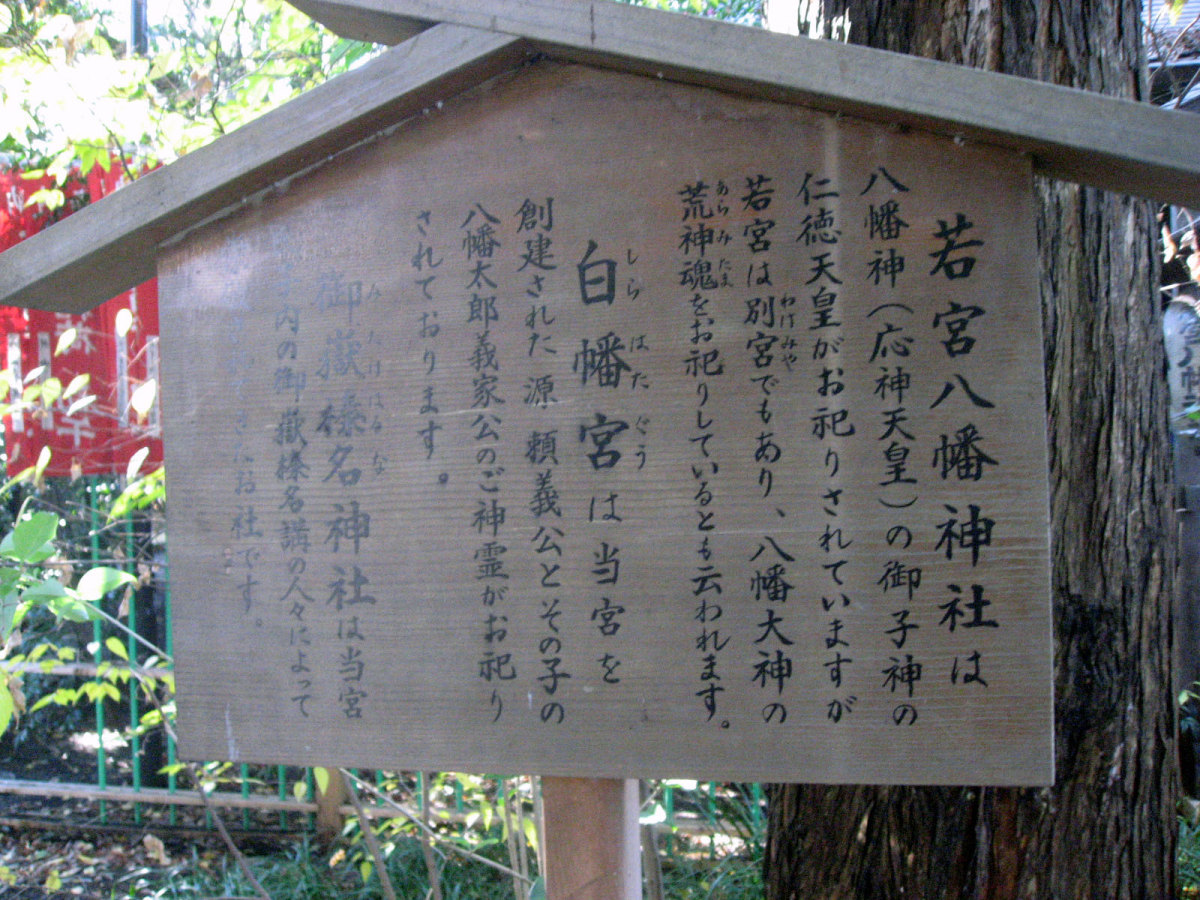 若宮八幡神社は
八幡神（応神天皇）の御子神の
仁徳天皇がお祀りされていますが
若宮は別宮でもあり、八幡大神の
わけみや
荒神魂をお祀りしているとも云われます。
あらみたま
白幡宮は当宮を
しらはたぐう
創建された源頼義公とその子の
八幡太郎義家公のご神霊がお祀り
されております。
御嶽榛名神社は当宮
みたけはるな
内の御嶽榛名講の人々によって
お社です。